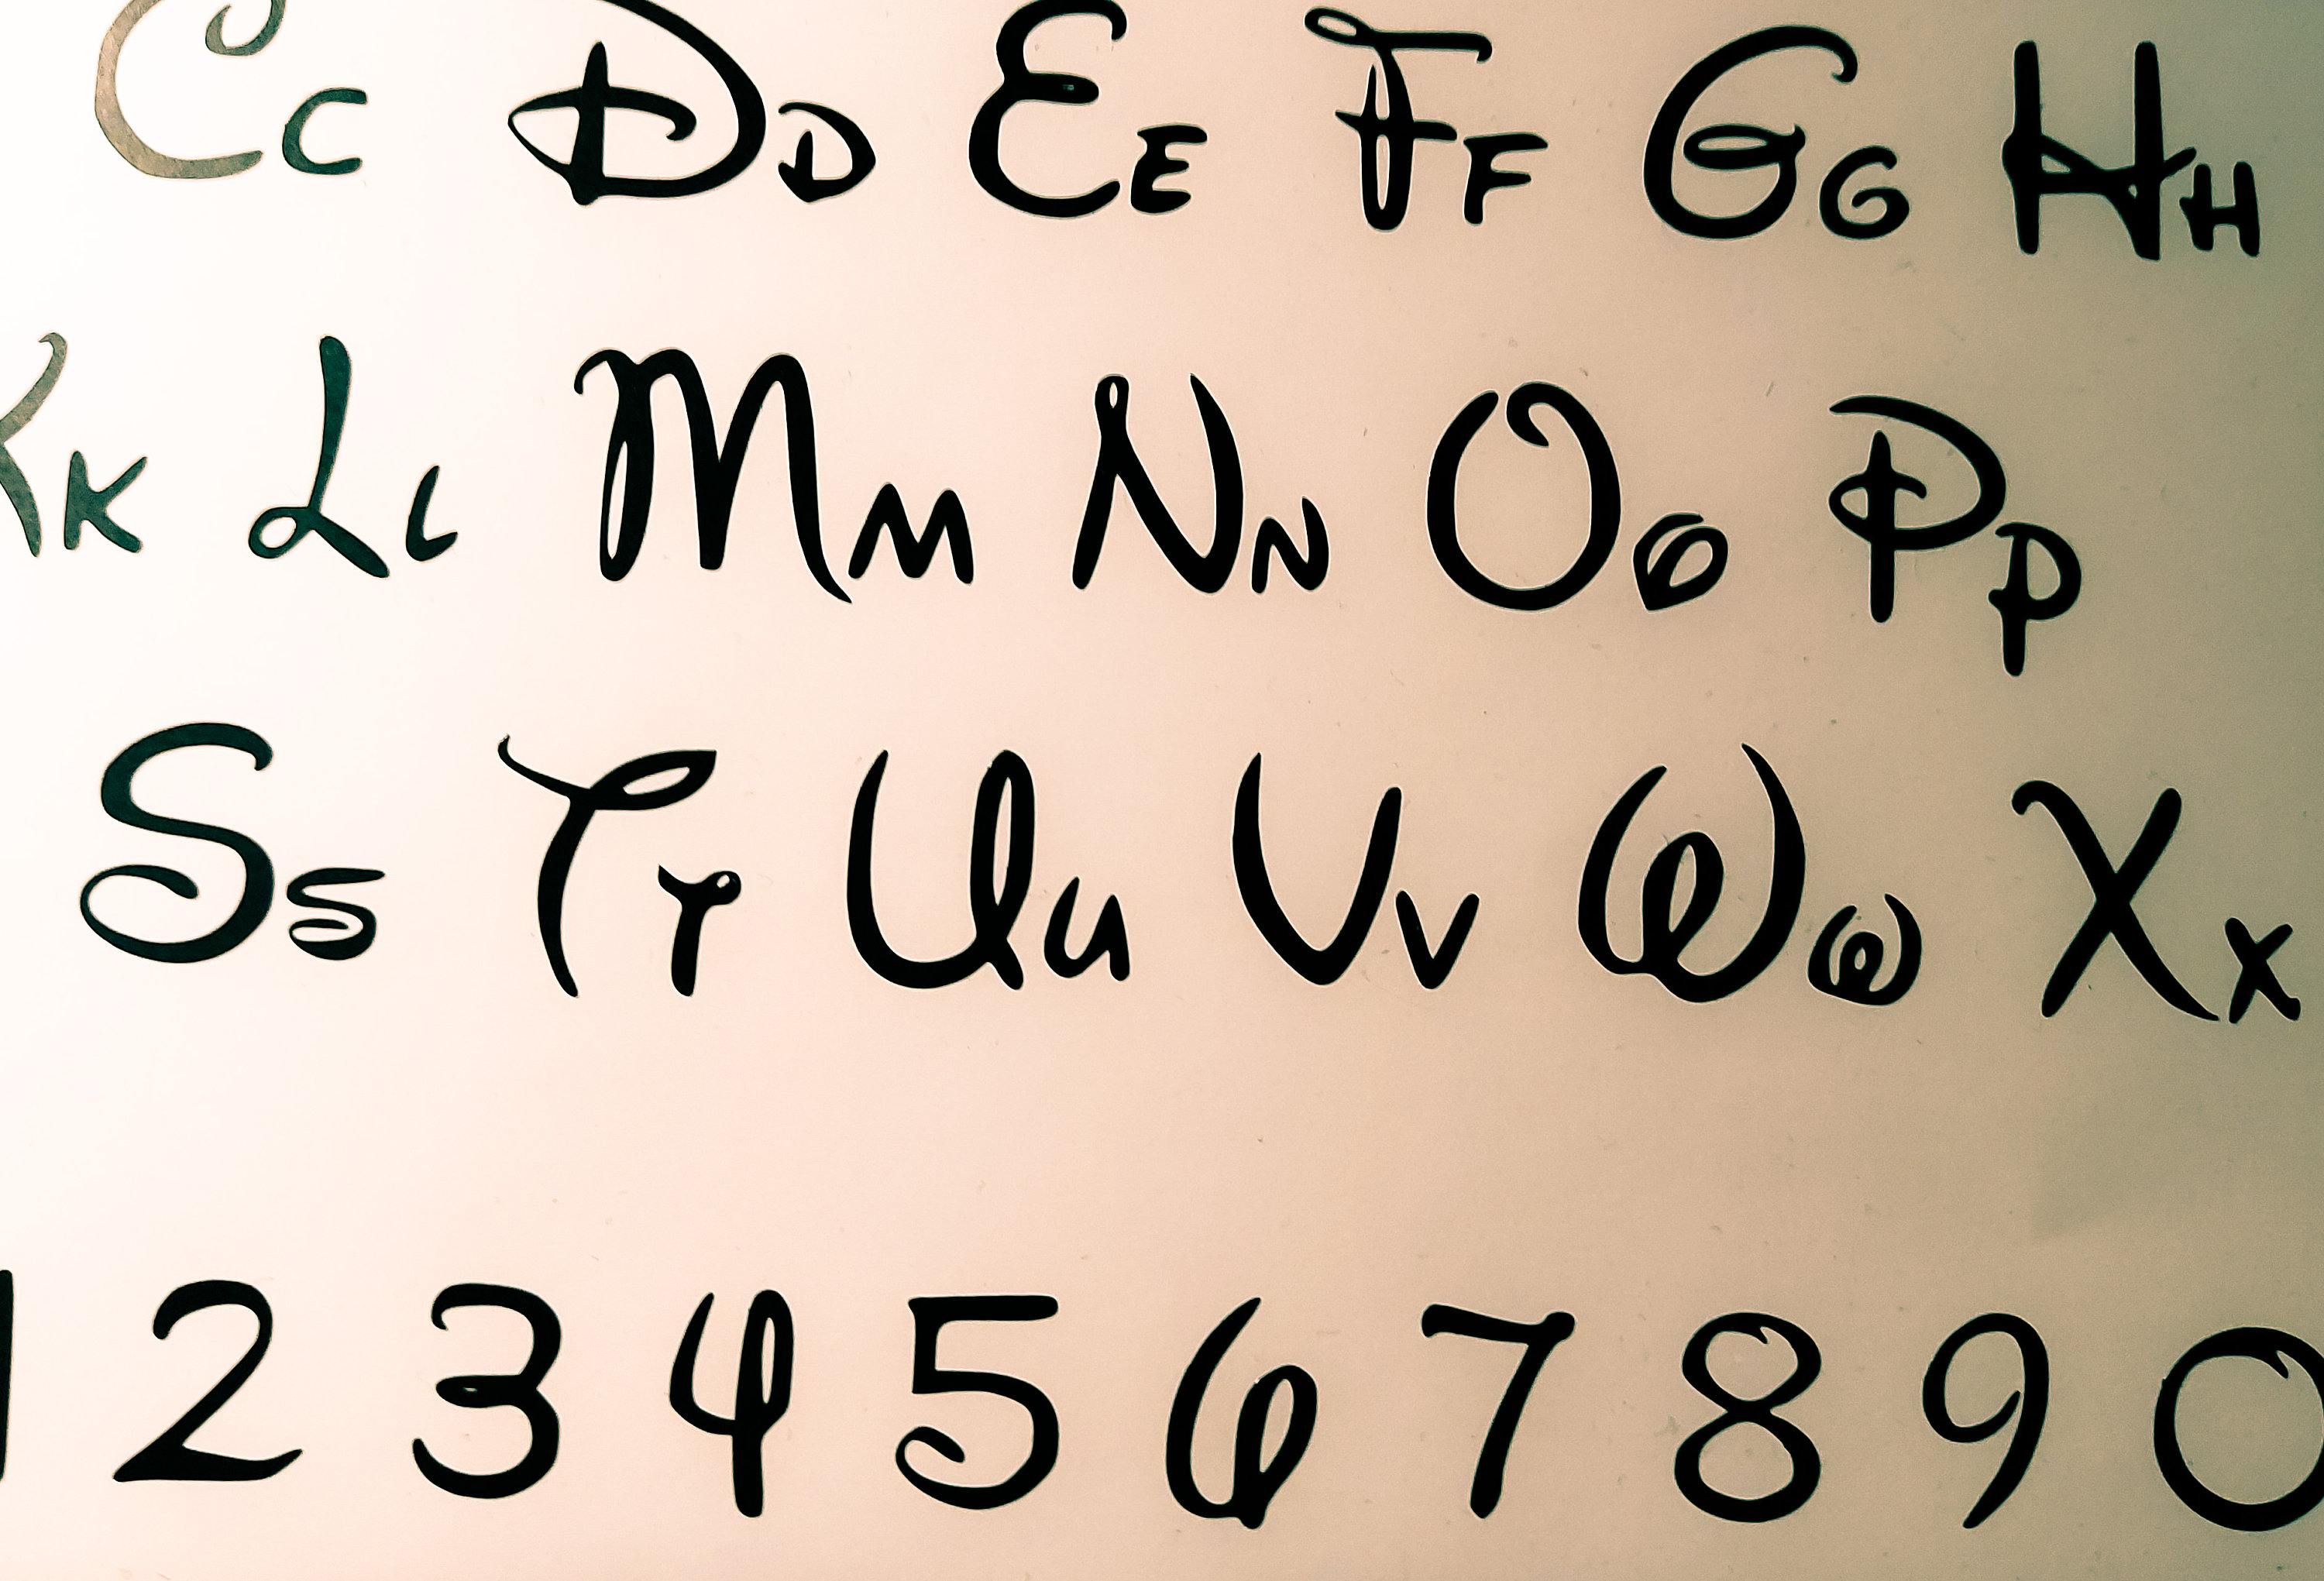 Cc Dd Ee Ff Gg Hh
Kk Ll Mm Nn Oo Pp
Ss Tt Uu Vv Ww Xx
1 2 3 4 5 6 7 8 9 0